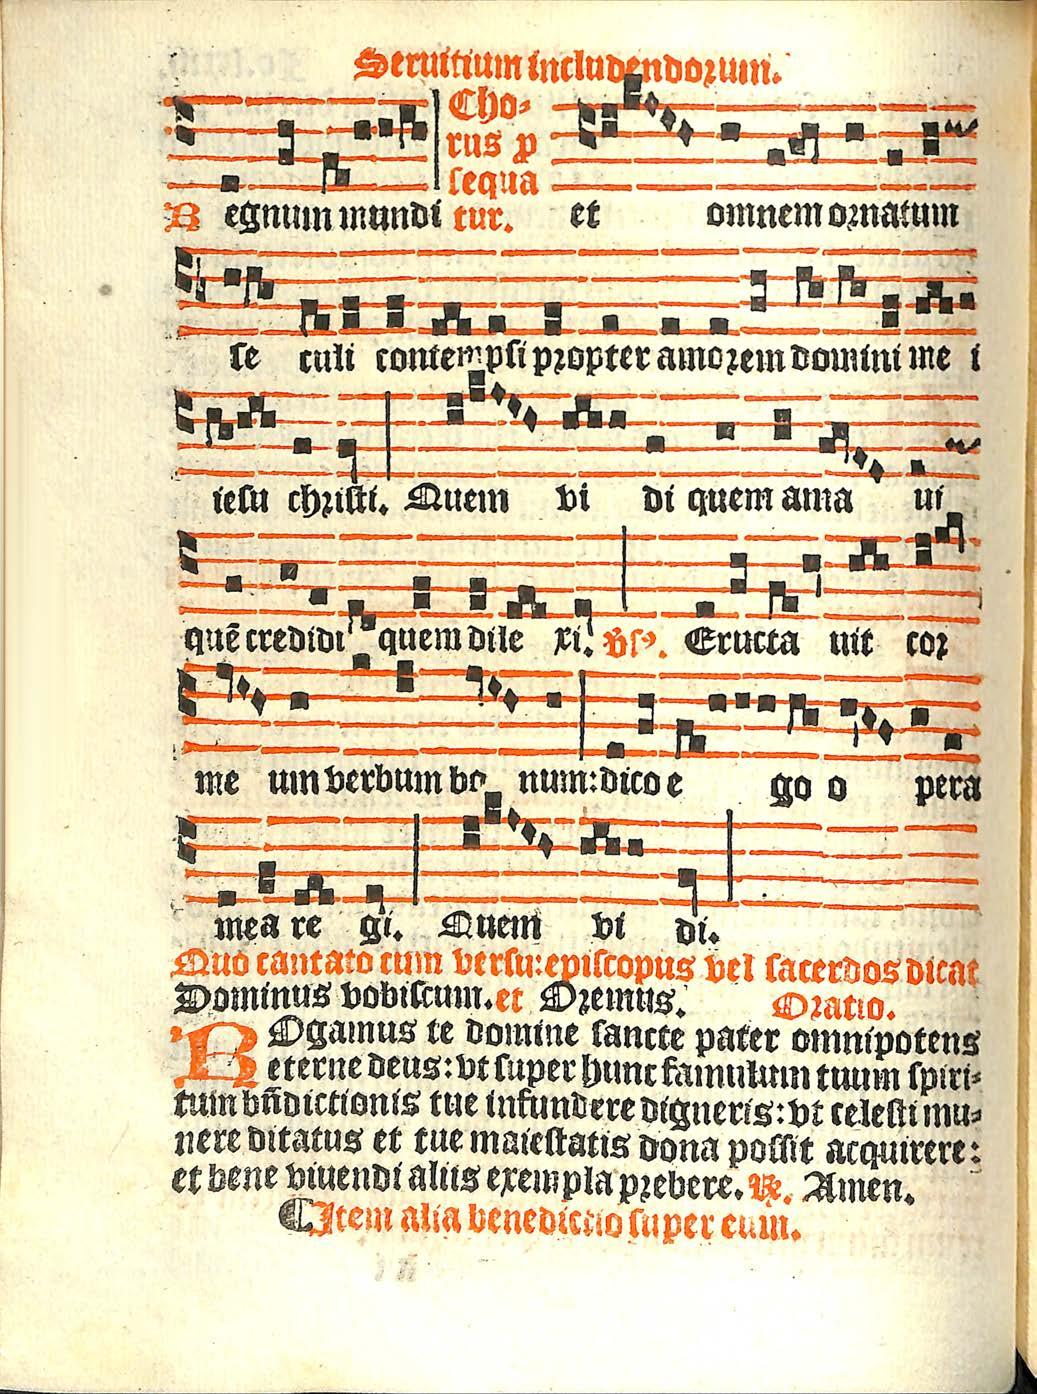 Seruitium includendorum.
Cho-
rus p
sequa
Regnum mundi tur. et omnem ornatum
se culi contempsi propter amorem domini me i
iesu christi. Quem vi di quem ama ui
quē credidi quem dile xi. v̄s. Eructa uit cor
me um verbum bo num: dico e go o pera
mea re gi. Quem vi di.
Quo cantato cum versu: episcopus vel sacerdos dicat
Dominus vobiscum. et Oremus. Oratio.
ROgamus te domine sancte pater omnipotens
eterne deus: vt super hunc famulum tuum spiri-
tum bn̄dictionis tue infundere digneris: vt celesti mu-
nere ditatus et tue maiestatis dona possit acquirere:
et bene viuendi aliis exempla prebere. ℟. Amen.
¶Item alia benedictio super eum.